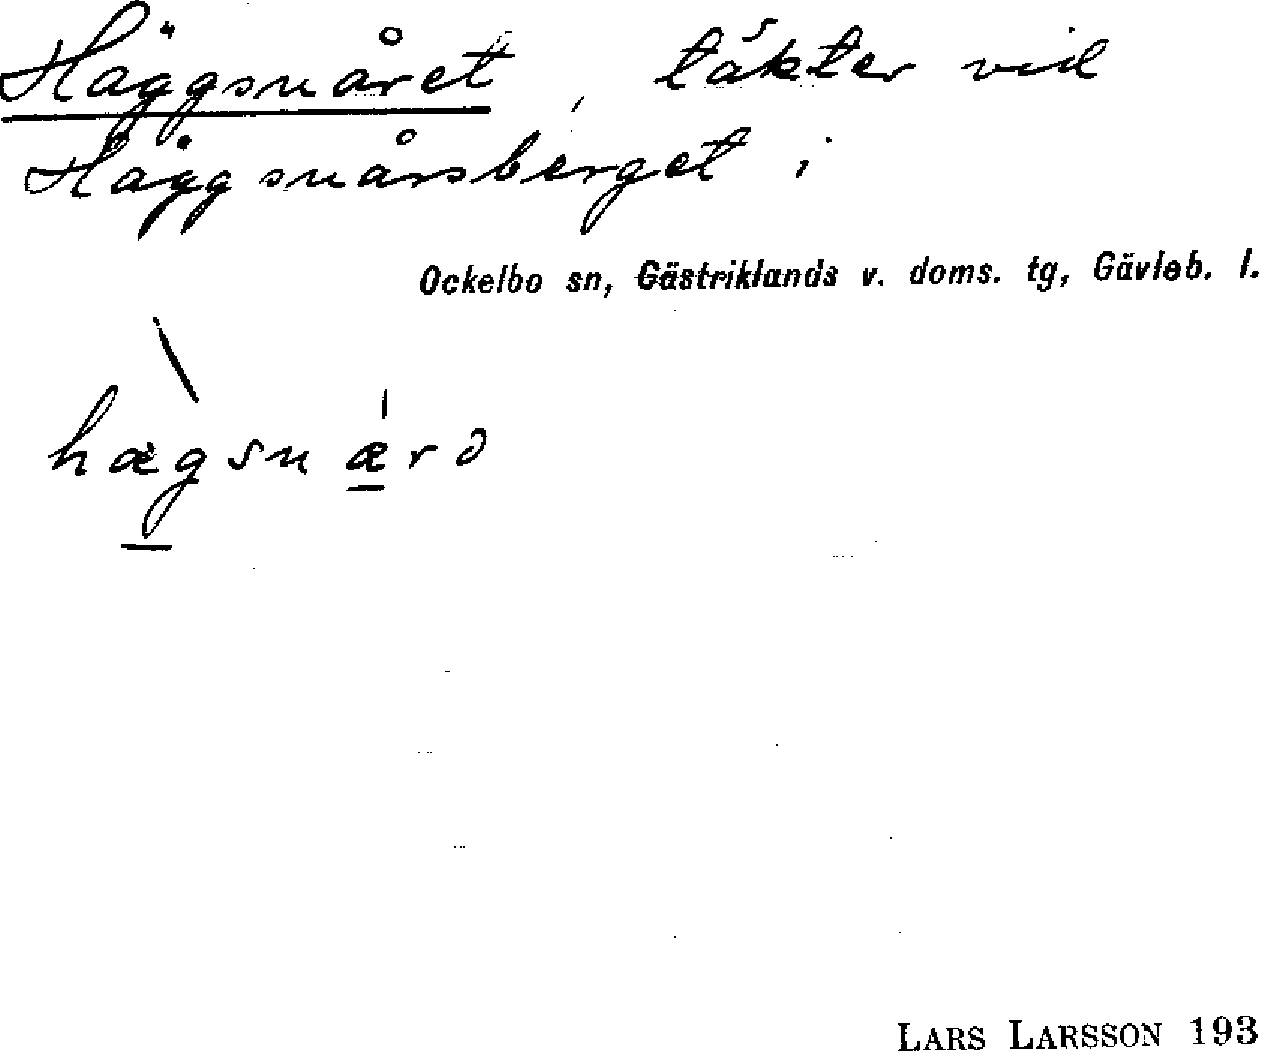 Häggsnåret, täkter vid
Häggsnårsberget i
Ockelbo sn, Gästriklands v. doms. tg, Gävleb. l.
hægsnærə
LARS LARSSON 193